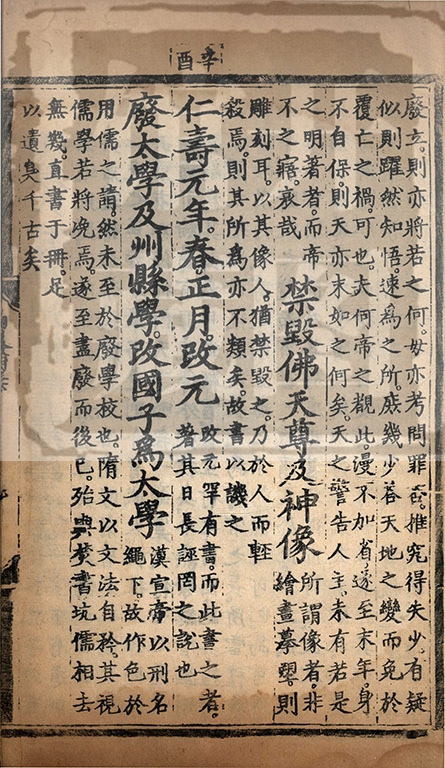 辛酉
廢立。則亦將若之何。毋亦考問罪咎。推究得失。少有疑
似。則躍然知悟。速爲之所。庶幾少荅天地之變。而免於
覆亡之禍。可也。夫何帝之覩此。漫不加省。遂至末年。身
不自保。則天亦末如之何矣。天之警告人主。未有若是
之明著者。而帝
不之寤。哀哉
禁毀佛天尊及神像
所謂像者。非
繪畫摹塑。則
雕刻耳。以其像人。猶禁毀之。乃於人而輕
殺焉。則其所爲亦不類矣。故書以譏之
仁壽元年。春。正月。改元
改元罕有書。而此書之者。
著其日長誣罔之說也
廢太學及州縣學。改國子爲太學
漢宣帝以刑名
繩下。故作色於
用儒之請。然未至於廢學校也。隋文以文法自矜。其視
儒學若將凂焉。遂至盡廢而後已。殆與焚書坑儒相去
無幾。直書于冊。足
以遺臭千古矣